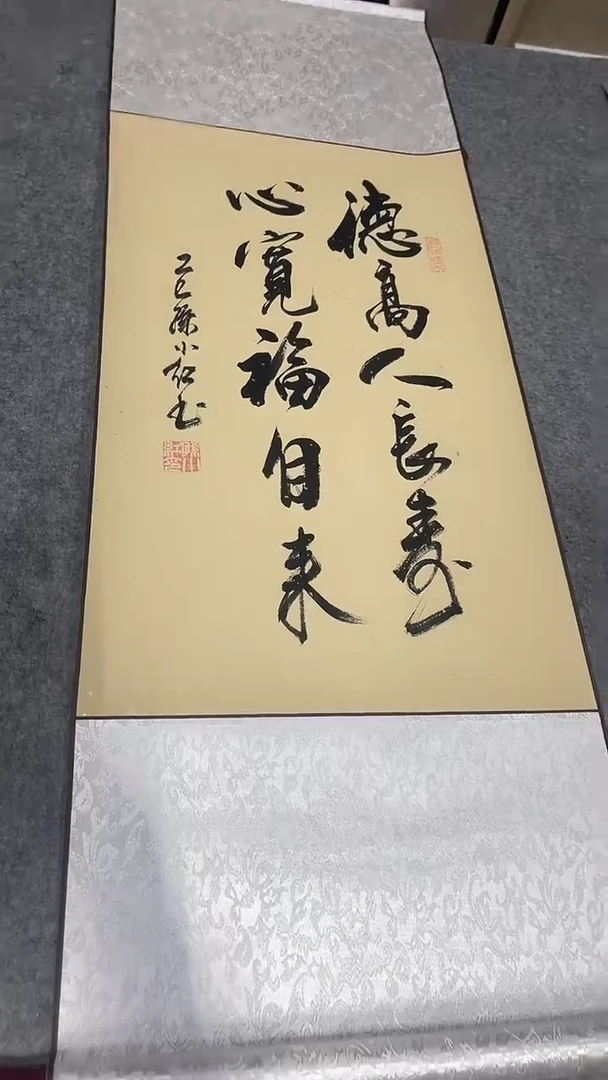 德高人長壽
心寬福自来
乙巳孫小红书